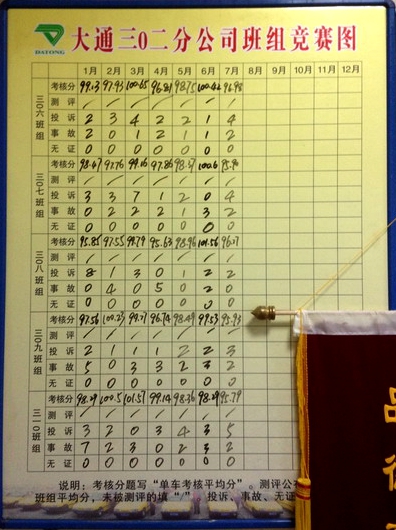 DATONG
大通三0二分公司班组竞赛图
1月 2月 3月 4月 5月 6月 7月 8月 9月 10月 11月 12月
三0六班组
考核分 99.13 97.93 100.65 96.81 98.75 100.42 96.98
测评 / / / / / / /
投诉 2 3 4 2 2 1 4
事故 2 0 1 2 1 1 2
无证 0 0 0 0 0 0 0
三0七班组
考核分 98.67 97.76 99.16 97.86 98.37 100.6
测评 / / / / / / /
投诉 3 3 7 1 2 0 4
事故 0 2 2 2 1 3 2
无证 0 0 0 0 0 0 0
三0八班组
考核分 95.85 97.55 98.79 95.63 98.96 101.56 96.17
测评 / / / / / / /
投诉 8 1 3 0 1 2 2
事故 0 4 0 5 0 2 0
无证 0 0 0 0 0 0 0
三0九班组
考核分 97.56 100.23 99.71 96.74 98.49 99.53 95.93
测评 / / / / / / /
投诉 2 1 1 1 2 2 3
事故 5 0 3 3 2 3 2
无证 0 0 0 0 0 0 0
三一0班组
考核分 98.29 100.5 101.57 99.14 98.36 98.29 95.79
测评 / / / / / / /
投诉 3 2 0 3 4 3 5
事故 7 2 3 0 2 3 2
无证 0 0 0 0 0 0 0
说明：考核分题写“单车考核平均分”。测评公
班组平均分，未被测评的填“/”。投诉、事故、无证
品